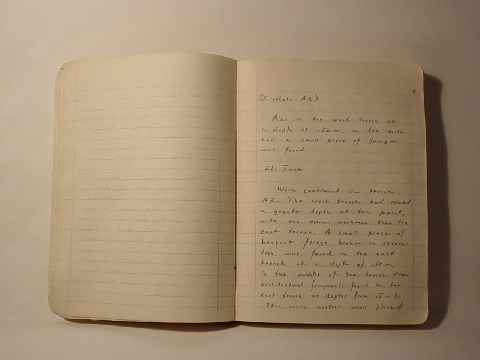 (Ciottolo A2)
Also in the west trench at
a depth of .50 m. in the
end, a small piece of
was found.
21. June
Work continued in trench
A2. The west trench had reached
a greater depth at this point,
with one more workman than the
east trench. A small piece of
banquet frieze, broken in
two, was found in the east
trench at a depth of .50 m.
in the middle of the trench. Other
architectural fragments found in the
east trench at depths from .50 m to
.70 m were another small piece of